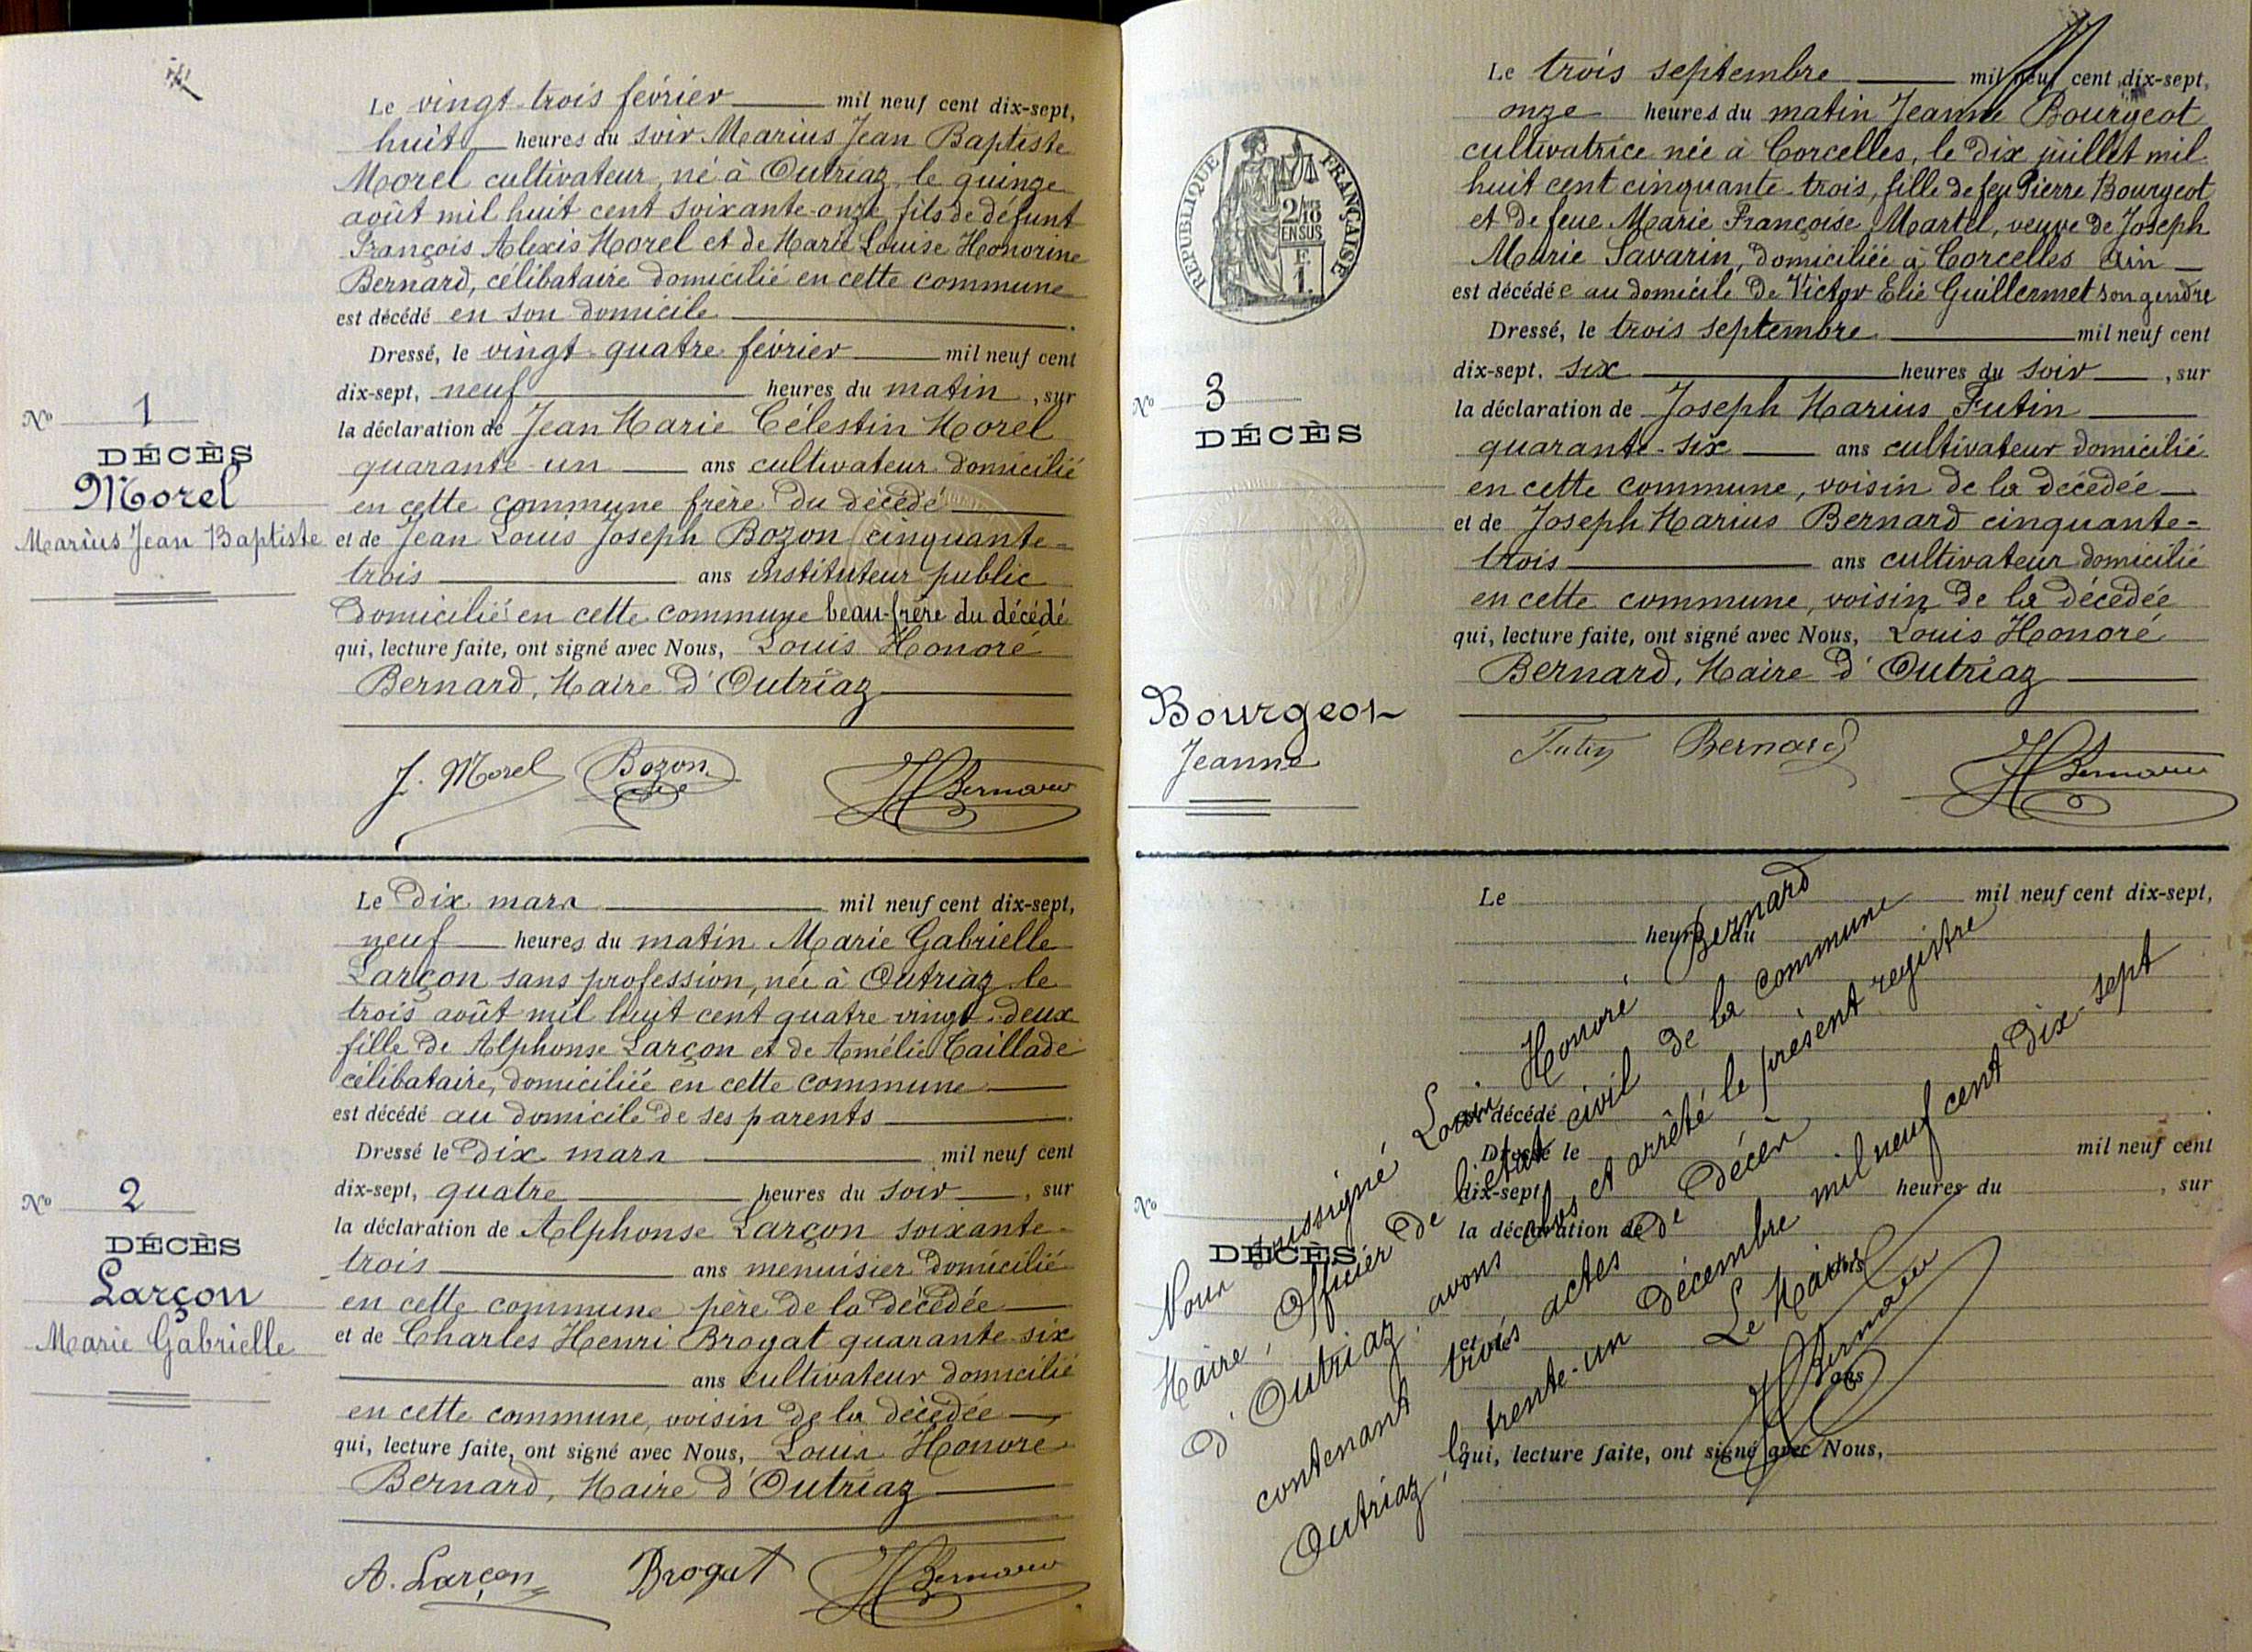 Le vingt-trois février mil neuf cent dix-sept,
huit heures du soir Marius Jean Baptiste
Morel cultivateur, né à Outriaz le quinze
août mil huit cent soixante-onze, fils de défunt
François Alexis Morel et de Marie Louise Honorine
Bernard, célibataire domicilié en cette commune
est décédé en son domicile
Dressé, le vingt-quatre février mil neuf cent
dix-sept, neuf heures du matin, sur
la déclaration de Jean Marie Célestin Morel
quarante-un ans cultivateur domicilié
en cette commune frère du décédé
et de Jean Louis Joseph Bozon cinquante-
trois ans instituteur public
domicilié en cette commune beau-frère du décédé
qui, lecture faite, ont signé avec Nous, Louis Honoré
Bernard, Maire d'Outriaz
No 1
DÉCÈS
Morel
Marius Jean Baptiste
J. Morel Bozon HBernard
Le dix mars mil neuf cent dix-sept,
neuf heures du matin Marie Gabrielle
Larçon sans profession, née à Outriaz le
trois août mil huit cent quatre vingt-deux
fille de Alphonse Larçon et de Amélie Caillade
célibataire, domiciliée en cette commune
est décédé au domicile de ses parents
Dressé le dix mars mil neuf cent
dix-sept, quatre heures du soir, sur
la déclaration de Alphonse Larçon soixante-
trois ans menuisier domicilié
en cette commune père de la décédée
et de Charles Henri Brogat quarante-six
ans cultivateur domicilié
en cette commune, voisin de la décédée
qui, lecture faite, ont signé avec Nous, Louis Honoré
Bernard, Maire d'Outriaz
No 2
DÉCÈS
Larçon
Marie Gabrielle
A. Larçon Brogat HBernard
Le trois septembre mil neuf cent dix-sept,
onze heures du matin Jeanne Bourgeot
cultivatrice née à Corcelles, le dix juillet mil
huit cent cinquante-trois, fille de feu Pierre Bourgeot
et de feue Marie Françoise Martel, veuve de Joseph
Marie Savarin, domiciliée à Corcelles Ain
est décédée au domicile de Victor Elie Guillermet son gendre
Dressé, le trois septembre mil neuf cent
dix-sept, six heures du soir, sur
la déclaration de Joseph Marius Futin
quarante-six ans cultivateur domicilié
en cette commune, voisin de la décédée
et de Joseph Marius Bernard cinquante-
trois ans cultivateur domicilié
en cette commune, voisin de la décédée
qui, lecture faite, ont signé avec Nous, Louis Honoré
Bernard, Maire d'Outriaz
RÉPUBLIQUE FRANÇAISE
2/10
EN SUS
F.
1.
No 3
DÉCÈS
Bourgeot
Jeanne
Futin Bernard HBernard
Le mil neuf cent dix-sept,
heures du
est décédé
Dressé le mil neuf cent
dix-sept, heures du , sur
la déclaration de
ans
et de
ans
qui, lecture faite, ont signé avec Nous,
No
DÉCÈS
Nous soussigné Louis Honoré Bernard
Maire, Officier de l'état civil de la commune
d'Outriaz, avons clos et arrêté le présent registre
contenant trois actes de décès
Outriaz, le trente-un décembre mil neuf cent dix-sept
Le Maire
HBernard